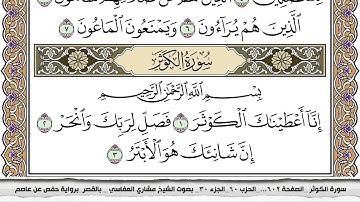 ٱلَّذِينَ هُمْ يُرَآءُونَ ٦ وَيَمْنَعُونَ ٱلْمَاعُونَ ٧
سُورَةُ الكَوْثَرِ
بِسْمِ ٱللَّهِ ٱلرَّحْمَٰنِ ٱلرَّحِيمِ
إِنَّآ أَعْطَيْنَٰكَ ٱلْكَوْثَرَ ١ فَصَلِّ لِرَبِّكَ وَٱنْحَرْ ٢
إِنَّ شَانِئَكَ هُوَ ٱلْأَبْتَرُ ٣
سورة الكوثر الصفحة ٦٠٢ ... الحزب ٦٠ الجزء ٣٠ . بصوت الشيخ مشاري العفاسي . بالقصر برواية حفص عن عاصم